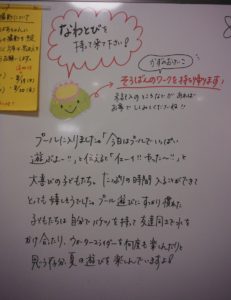 なわとびを
持って来て下さい!
かずのおけいこ
そろばんのワークを持ち帰ります!
お家で
プールに入りました。「今日はプールでいっぱい
遊ぶよー!!」と伝えると「イェーイ!!やったー!!」と
大喜びの子どもたち。たっぷりの時間入ることができて
とても嬉しそうでした。プール遊びにすっかり慣れた
子どもたちは自分でバケツを持って友達同士で水を
かけ合ったり、ウォータースライダーを何度も楽しんだりと
思う存分夏の遊びを楽しんでいますよ!